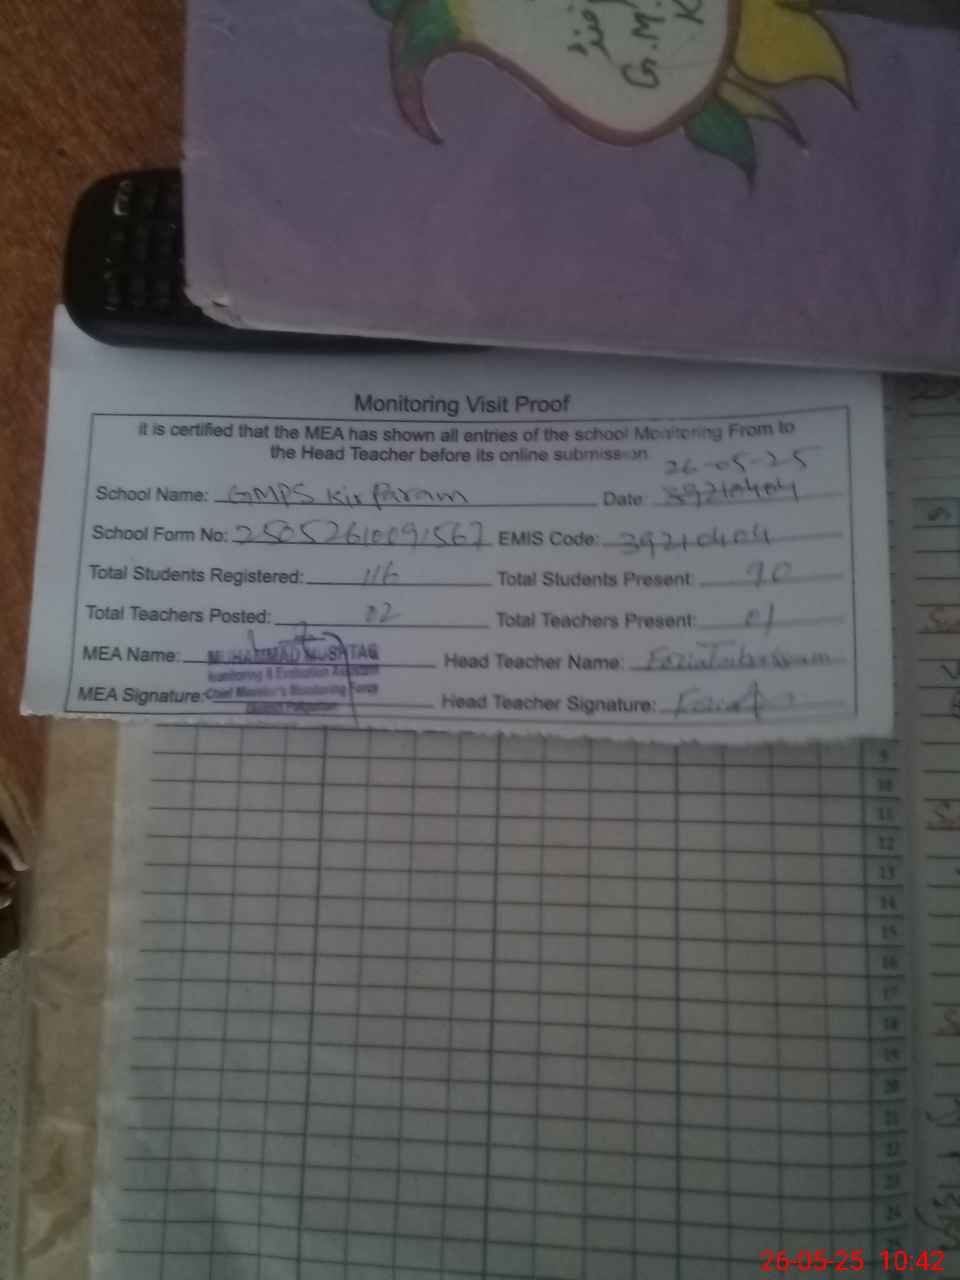 G.M.
K
Monitoring Visit Proof
it is certified that the MEA has shown all entries of the school Monitoring From to
the Head Teacher before its online submission
26-05-25
School Name: GMPS Kir Param Date 39210404
School Form No: 25052610091567 EMIS Code: 39210404
Total Students Registered: 116 Total Students Present: 90
Total Teachers Posted: 02 Total Teachers Present: 01
MEA Name: MUHAMMAD MUSHTAQ Head Teacher Name: Fozia Tabassum
Monitoring & Evaluation Assistant
MEA Signature: Chief Minister's Monitoring Force Head Teacher Signature: Fozia
District Pakpattan
9
10
11
12
13
14
15
16
17
18
19
20
21
22
23
24
26-05-25 10:42